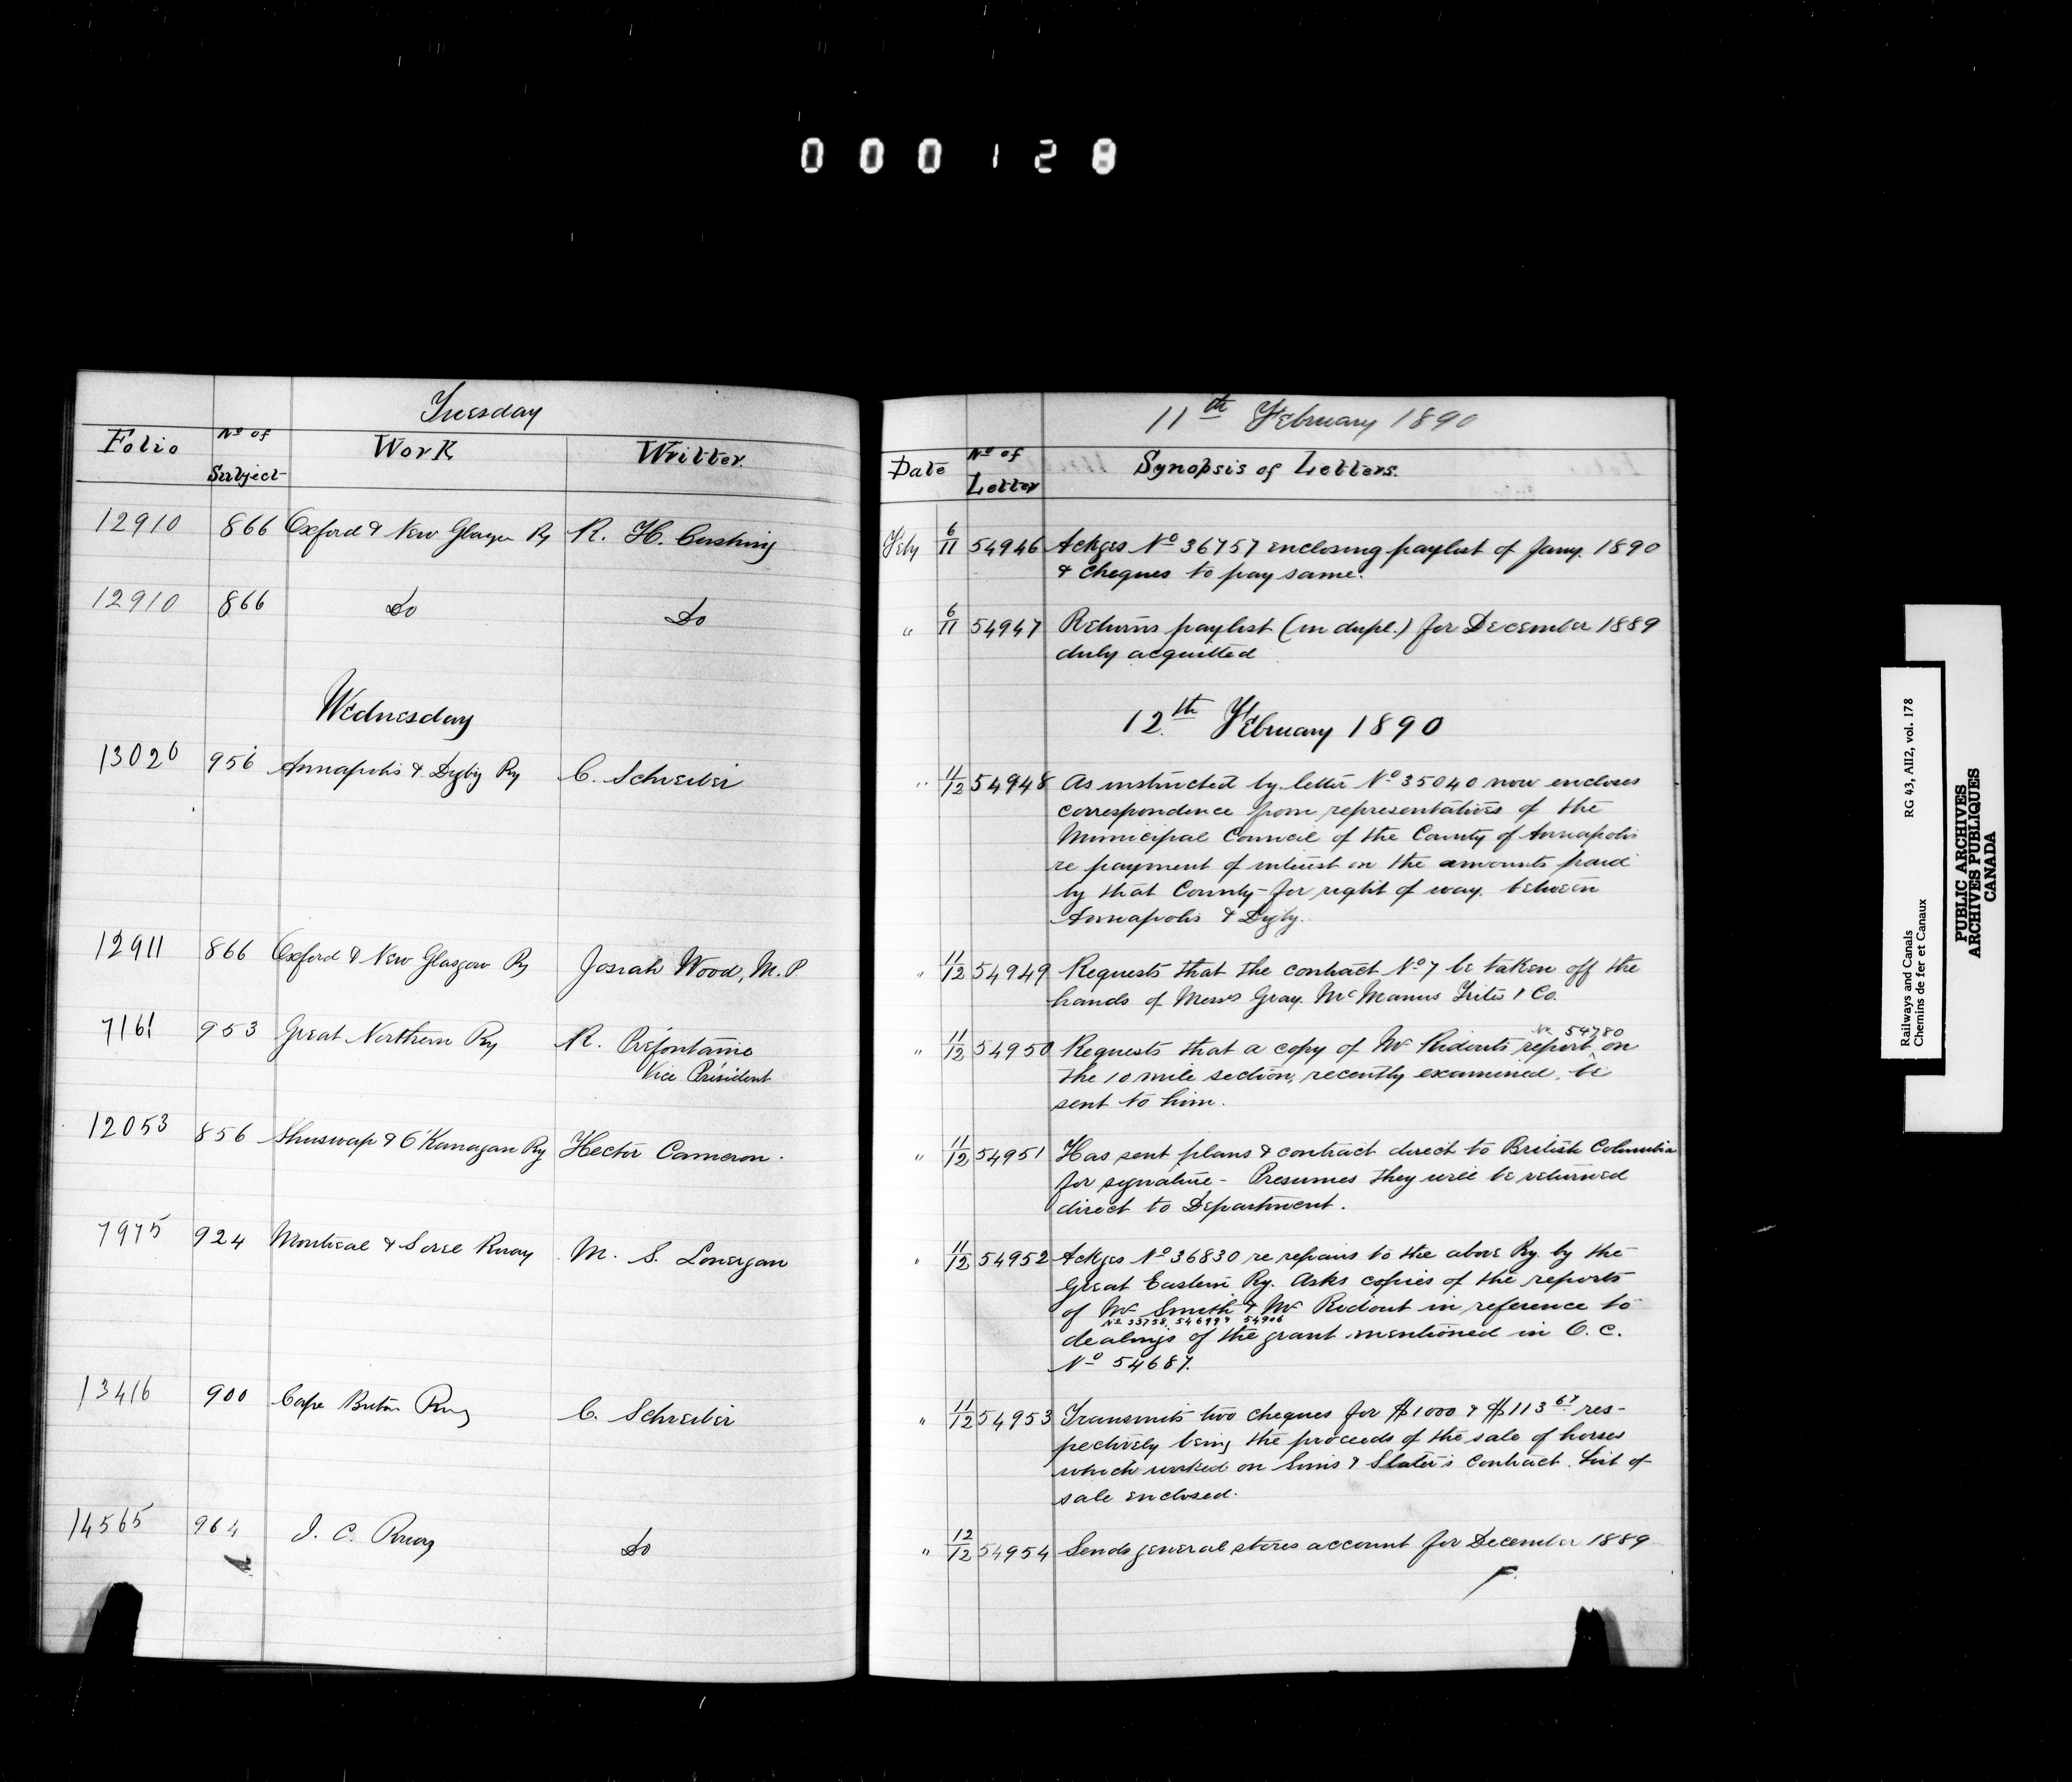 000128
Tuesday
11th February 1890
Folio
No of Subject
Work
Writter.
Date
No of Letter
Synopsis of Letters.
12910 866 Oxford & New Glasgow Ry R. H. Cushing
Feby 6/11 54946 Ackges No 36757 enclosing paylist of Jany. 1890
& cheques to pay same.
12910 866 Do Do
" 6/11 54947 Returns paylist (in dupl.) for December 1889
duly acquitted
Wednesday
12th February 1890
13020 956 Annapolis & Digby Ry C. Schreiber
" 11/12 54948 As instructed by letter No 35040 now encloses
correspondence from representatives of the
Municipal Council of the County of Annapolis
re payment of interest on the amounts paid
by that County for right of way between
Annapolis & Digby.
12911 866 Oxford & New Glasgow Ry Josiah Wood, M.P.
" 11/12 54949 Requests that the contract No 7 be taken off the
hands of Messrs Gray McManus Fites & Co.
7161 953 Great Northern Ry R. Préfontaine
Vice Président
No 54780
" 11/12 54950 Requests that a copy of Mr Ridouts report on
the 10 mile section, recently examined, be
sent to him.
12053 856 Shuswap & O'Kanagan Ry Hector Cameron.
" 11/12 54951 Has sent plans & contract direct to British Columbia
for signature - Presumes they will be returned
direct to Department.
7975 924 Montreal & Sorel Rway M. S. Lonergan
" 11/12 54952 Ackges No 36830 re repairs to the above Ry. by the
Great Eastern Ry. Asks copies of the reports
of Mr Smith & Mr Ridout in reference to
dealings of the grant mentioned in O.C.
No 54687.
13416 900 Cape Breton Rway C. Schreiber
" 11/12 54953 Transmits two cheques for $1000 & $113 67 res-
pectively being the proceeds of the sale of horses
which worked on Sims & Slater's contract. List of
sale enclosed.
14565 964 I. C. Rway Do
" 12/12 54954 Sends general stores account for December 1889
Railways and Canals RG 43, AII2, vol. 178
Chemins de fer et Canaux
PUBLIC ARCHIVES
ARCHIVES PUBLIQUES
CANADA